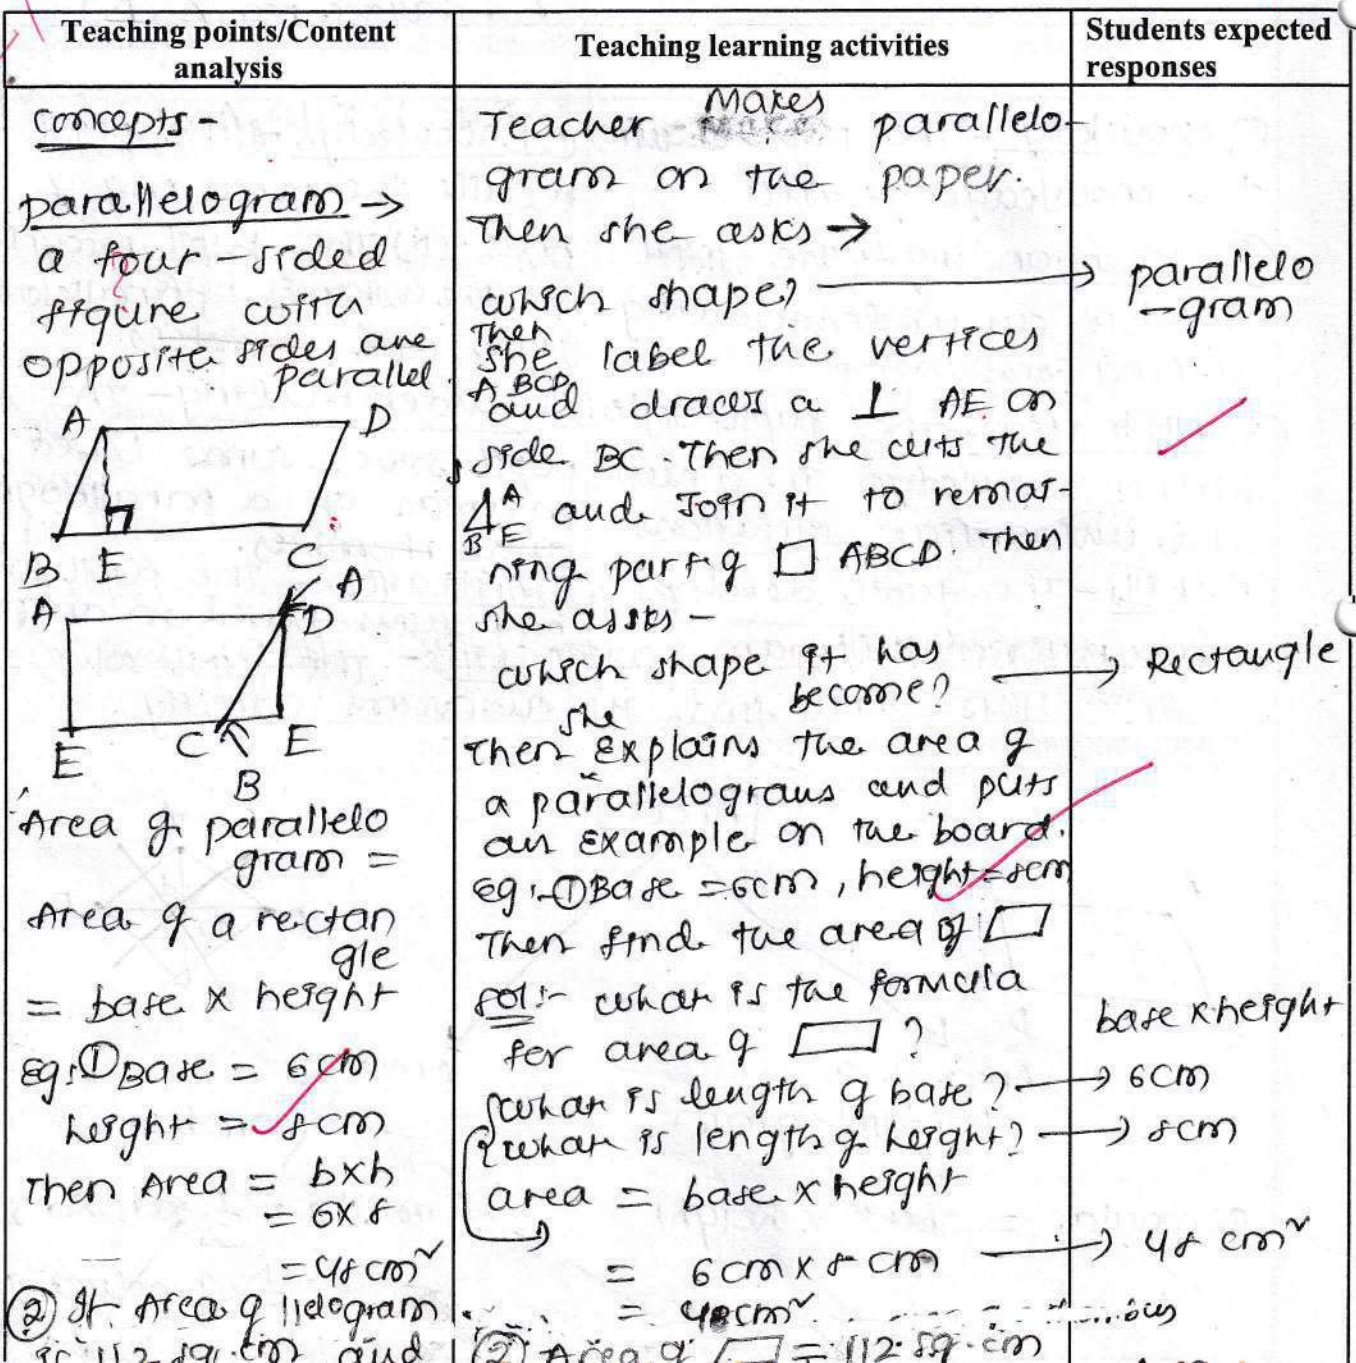 Teaching points/Content
analysis
Teaching learning activities
Students expected
responses
concepts-
parallelogram →
a four-sided
figure with
opposite sides are
parallel.
A D
B E C
A
A D
E C E
B
Area of parallelo
gram =
Area of a rectan
gle
= base x height
Eg:① Base = 6cm
height = 8cm
Then Area = bxh
= 6x8
= 48cm²
② If Area of llelogram
is 112 sq.cm and
Makes
Teacher parallelo-
gram on the paper.
Then she asks →
which shape? →
Then
she label the vertices
A BCD
and draws a ⊥ AE on
side BC. Then she cuts the
A
and Join it to remai-
B E
ning part of □ ABCD. Then
she asks -
which shape it has
become? →
she
Then explains the area of
a parallelograms and puts
an example on the board.
eg:-① Base = 6cm, height = 8cm
Then find the area of ▱
sol:- what is the formula
for area of ▱ ?
what is length of base? →
what is length of height? →
area = base x height
= 6cm x 8cm →
= 48cm²
② Area of ▱ = 112 sq.cm
parallelo
-gram
Rectangle
base x height
6cm
8cm
48 cm²